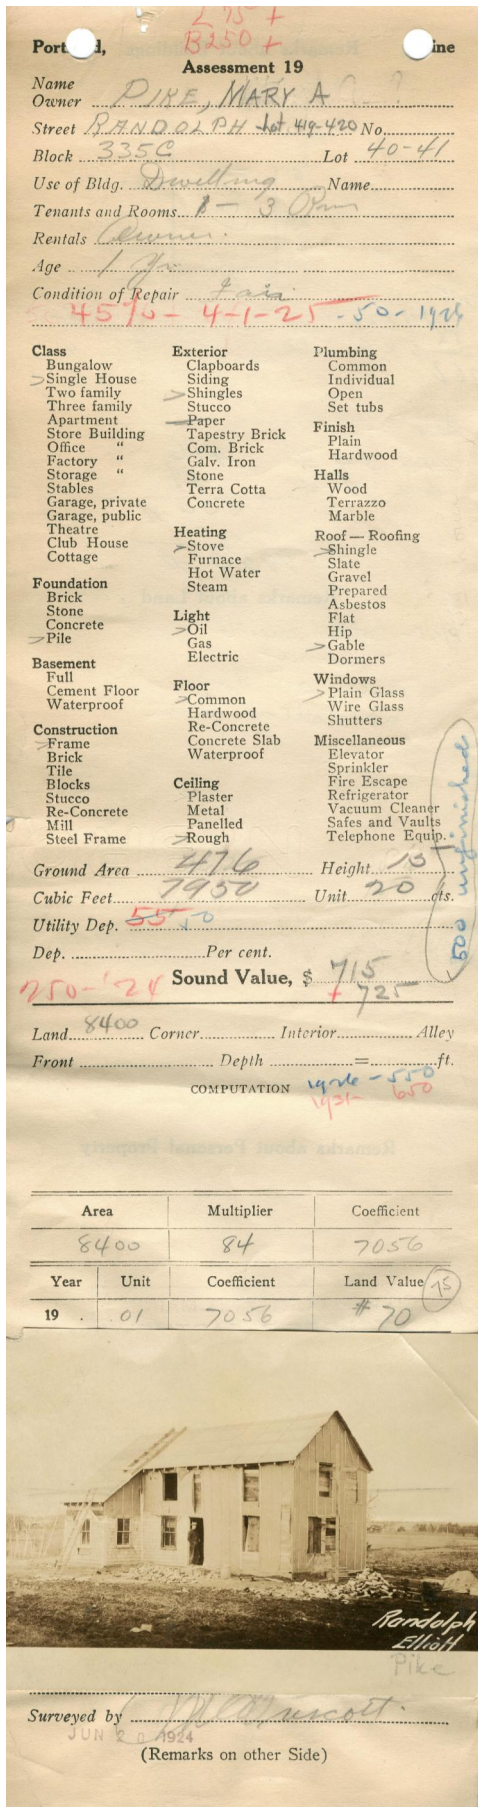 L 75 +
B250 +
Portland, Maine
Assessment 19
Name
Owner PIKE, MARY A
Street RANDOLPH Lot 419-420 No.
Block 335C Lot 40-41
Use of Bldg. Dwelling Name
Tenants and Rooms 1 - 3 Rm
Rentals Owner.
Age 1 Yr.
Condition of Repair Fair
4-1-25 -50-1926
Class
Bungalow
Single House
Two family
Three family
Apartment
Store Building
Office "
Factory "
Storage "
Stables
Garage, private
Garage, public
Theatre
Club House
Cottage
Foundation
Brick
Stone
Concrete
Pile
Basement
Full
Cement Floor
Waterproof
Construction
Frame
Brick
Tile
Blocks
Stucco
Re-Concrete
Mill
Steel Frame
Exterior
Clapboards
Siding
Shingles
Stucco
Paper
Tapestry Brick
Com. Brick
Galv. Iron
Stone
Terra Cotta
Concrete
Heating
Stove
Furnace
Hot Water
Steam
Light
Oil
Gas
Electric
Floor
Common
Hardwood
Re-Concrete
Concrete Slab
Waterproof
Ceiling
Plaster
Metal
Panelled
Rough
Plumbing
Common
Individual
Open
Set tubs
Finish
Plain
Hardwood
Halls
Wood
Terrazzo
Marble
Roof — Roofing
Shingle
Slate
Gravel
Prepared
Asbestos
Flat
Hip
Gable
Dormers
Windows
Plain Glass
Wire Glass
Shutters
Miscellaneous
Elevator
Sprinkler
Fire Escape
Refrigerator
Vacuum Cleaner
Safes and Vaults
Telephone Equip.
500 unfinished
Ground Area 476 Height 15
Cubic Feet 7950 Unit 20 cts.
Utility Dep. 55 50
Dep. Per cent.
Sound Value, $ 715
250-'24 + 725
Land 8400 Corner Interior Alley
Front Depth = ft.
COMPUTATION 1926 - 550
1931- 650
Area Multiplier Coefficient
8400 84 7056
Year Unit Coefficient Land Value 75
19 . .01 7056 # 70
Randolph
Elliott
Pike
Surveyed by
JUN 20 1924
(Remarks on other Side)